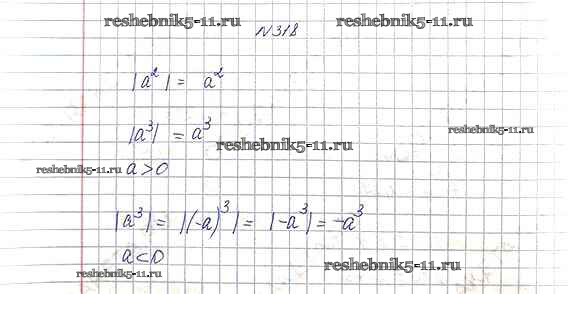 reshebnik5-11.ru reshebnik5-11.ru
№318
|a²| = a²
reshebnik5-11.ru
|a³| = a³
reshebnik5-11.ru
reshebnik5-11.ru a>0
|a³| = |(-a)³| = |-a³| = -a³
a<0
reshebnik5-11.ru
reshebnik5-11.ru